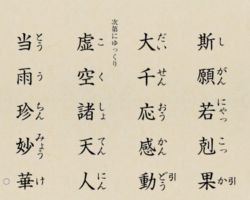 斯願若剋果
し がん にゃっ こっ か 引
大千応感動
だい せん おう かん どう 引
次第にゆっくり
虚空諸天人
こ く しょ てん にん
当雨珍妙華
とう う ちん みょう け
○